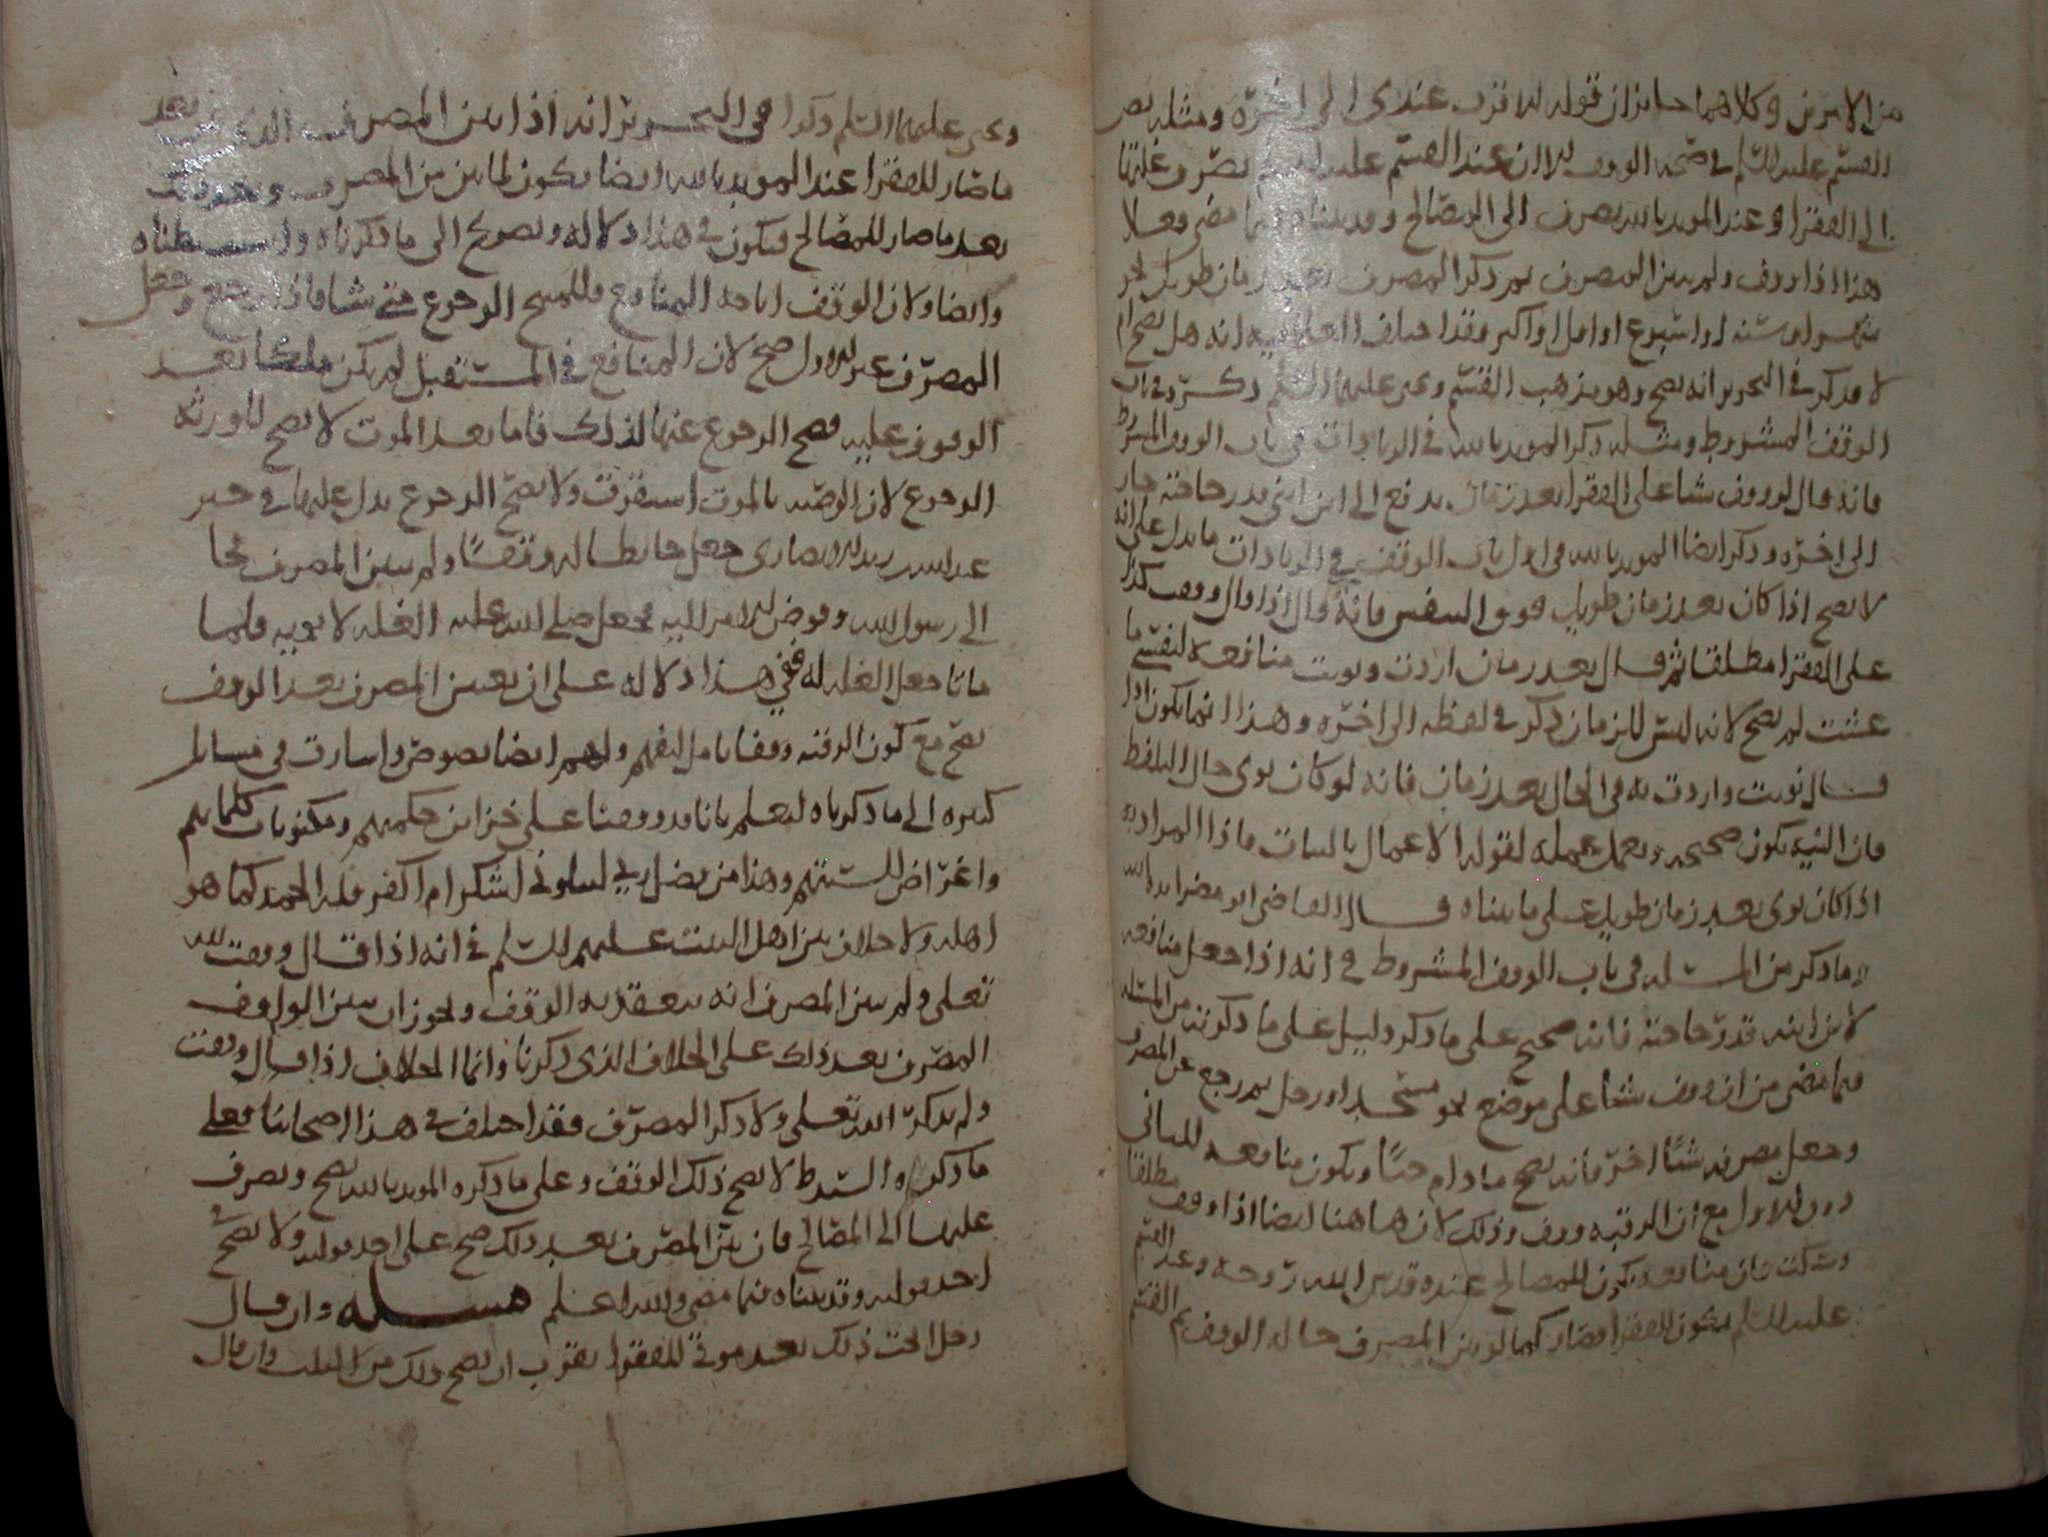 من الامرين وكلاهما جايزان قوله الاقرب عندى الى اخره ومثله نص
القسم عليه السلم في صحه الوقف الا ان عند القسم عليه السلم تصرف غلتها
الى الفقرا وعند المويد بالله يصرف الى المصالح وقد بيناه فيما مضى فعلا
هذا اذا وقف ولم يبين المصرف ثم ذكر المصرف بعد زمان طويل نحو
شهر او سنه او اسبوع او اقل او اكثر فقد اختلف العلما فيه انه هل يصح ام
لا فذكر في التحرير انه يصح وهو مذهب القسم ويحيى عليهما السلم ذكره في باب
الوقف المشروط ومثله ذكر المويد بالله في الزيادات في باب الوقف المشروط
فانه قال لو وقف شيا على الفقرا بعد زمان يدفع الى ابن ابني قدر حاجته جاز
الى اخره وذكر ايضا المويد بالله في اول باب الوقف في الزيادات ما يدل على انه
لا يصح اذا كان بعد زمان طويل فوق النفس فانه قال اذا قال وقفت كذا
على الفقرا مطلقا ثم قال بعد زمان اردت ونويت منافعه لنفسي ما
عشت لم يصح لانه ليس للزمان ذكر في لفظه الى اخره وهذا انما يكون اذا
قال نويت واردت به في الحال بعد زمان فانه لو كان نوى حال التلفظ
فان النيه تكون صحيحه ويعمل عمله لقوله الاعمال بالنيات فاذا المراد به
اذا كان نوى بعد زمان طويل على ما بيناه قال القاضى ابو مضر ايده الله
ما ذكر من المسله في باب الوقف المشروط في انه اذا جعل منافعه
لابن ابنه قدر حاجته فانه صحيح على ما ذكر دليل على ما ذكرته من المسله
فيما مضى من ان وقف شيا على موضع نحو مسجد او رجل ثم رجع عن المصرف
وجعل مصرفه شيا اخر فانه يصح ما دام حيا ويكون منافعه للثاني
دون الاول مع ان الرقبه وقف وذلك لان هاهنا ايضا اذا وقف مطلقا
وسكت فان منافعه يكون للمصالح عنده قدس الله روحه وعند القسم
عليه السلم يكون للفقرا فصار كما لو بين المصرف حاله الوقف ثم القسم
ويحيى عليهما السلم ذكرا في التحرير انه اذا بين المصرف الذي بعد
ما صار للفقرا عند المويد بالله ايضا يكون لما بين من المصرف ويجوز ذلك
بعد ما صار للمصالح فيكون في هذا دلاله وتصريح الى ما ذكرناه واستنبطناه
وايضا ولان الوقف اباحه المنافع وللمبيح الرجوع متى شا فاذا رجع وجعل
المصرف غير الاول صح لان المنافع في المستقبل لم يكن ملكا بعد
الموقوف عليه فصح الرجوع عنها لذلك فاما بعد الموت لا يصح لاورثه
الرجوع لان الوصيه بالموت استقرت ولا يصح الرجوع يدل عليها في خبر
عبدالله بن زيد الانصارى جعل حايطا له وقفا ولم يبين المصرف فجا
الى رسول الله وفوض الامر اليه فجعل صلى الله عليه الغله لابويه فلما
ماتا جعل الغله له ففي هذا دلاله على ان تعيين المصرف بعد الوقف
يصح مع كون الرقبه وقفا تامل تفهم ولهم ايضا نصوص واشارت في مسايل
كثيره الى ما ذكرناه ليعلم بانا قد وقفنا على خزاين حكمهم ومكنونات كلماتهم
واغراض السنتهم وهذا من فضل ربي ليبلوني اشكر ام اكفر فله الحمد كما هو
اهله ولا خلاف بين اهل البيت عليهم السلم في انه اذا قال وقفت لله
تعلى ولم يبين المصرف انه ينعقد به الوقف ويجوز ان يبين الواقف
المصرف بعد ذلك على الخلاف الذى ذكرنا وانما الخلاف اذا قال وقفت
ولم يذكر الله تعلى ولا ذكر المصرف فقد اختلف في هذا اصحابنا فعلى
ما ذكره الشرط لا يصح ذلك الوقف وعلى ما ذكره المويد بالله يصح وتصرف
غلتها الى المصالح فان بين المصرف بعد ذلك صح على احد قوليه ولا يصح في
احد قوليه وقد بيناه فيما مضى والله اعلم مسله وان قال
رجل اخرجت ذلك بعد موتي للفقرا يقرب ان يصح ذلك من الثلث وان قال